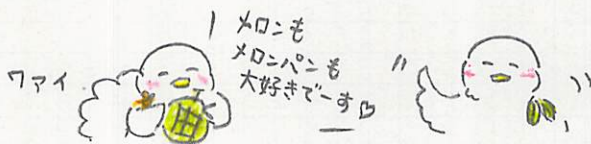 ワァイ
メロンも
メロンパンも
大好きでーす♡